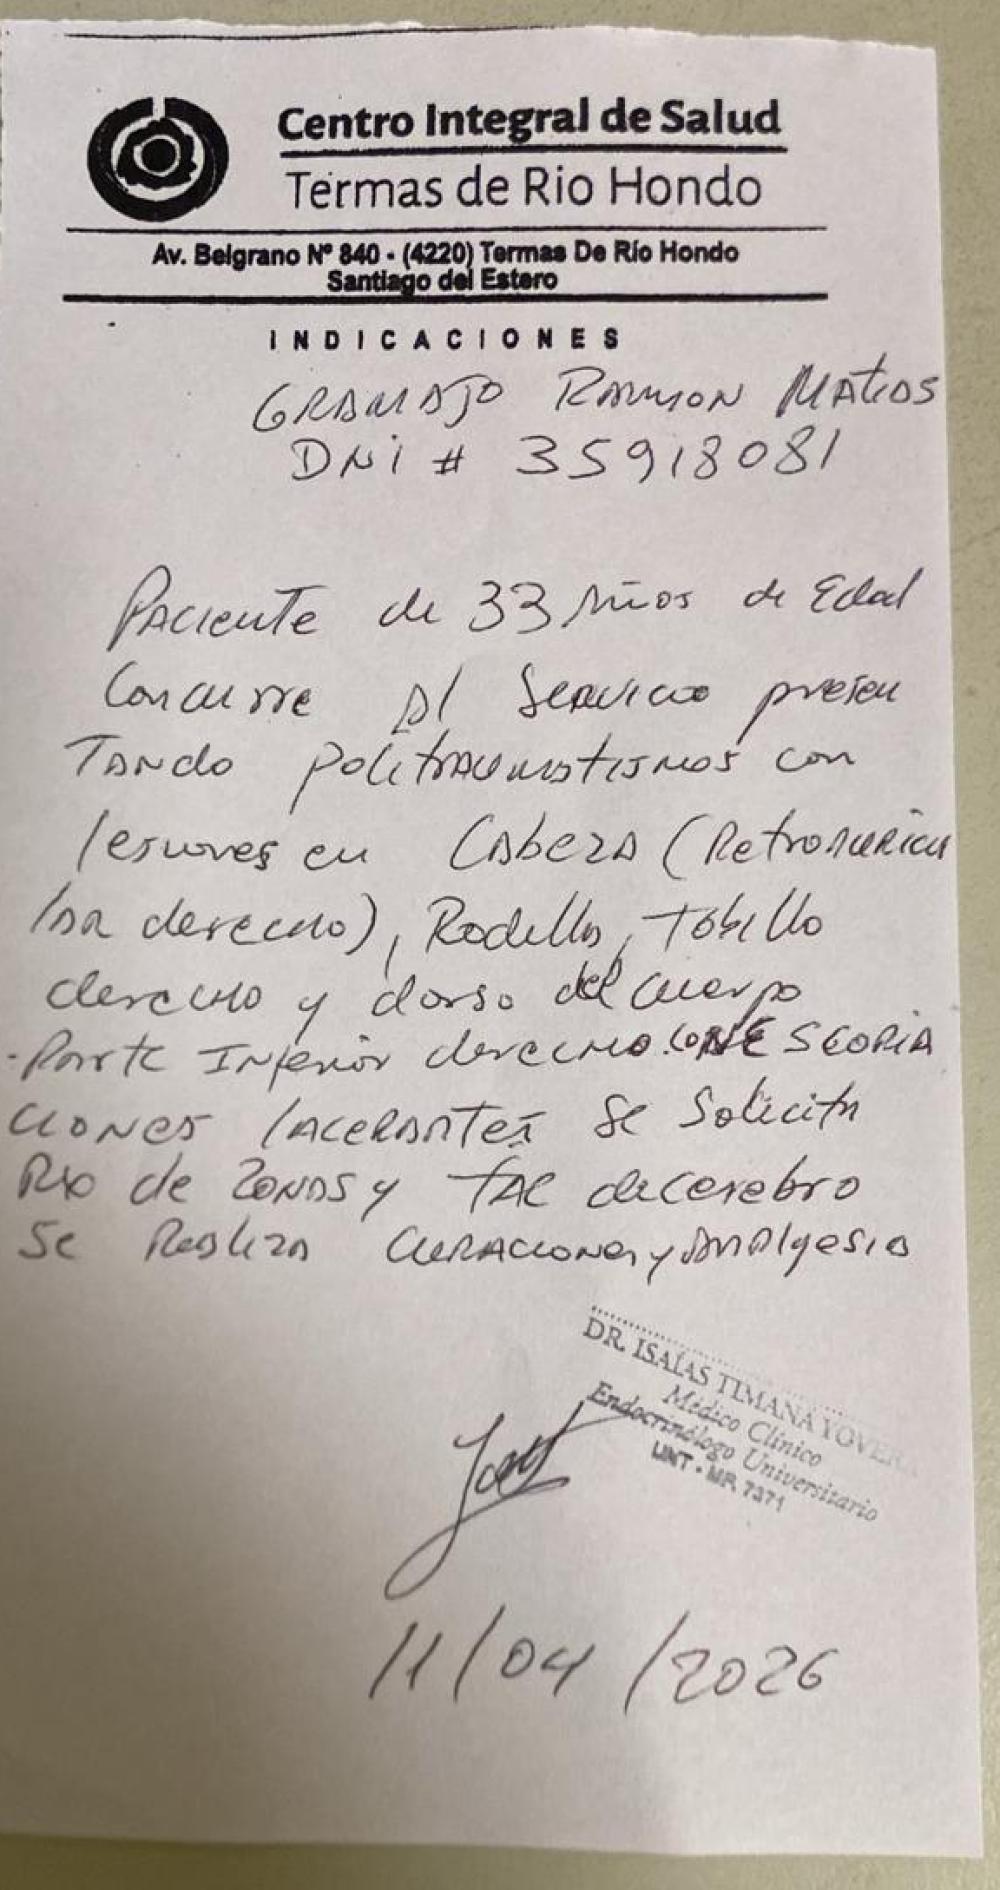 Centro Integral de Salud
Termas de Rio Hondo
Av. Belgrano Nº 840 - (4220) Termas De Río Hondo
Santiago del Estero
INDICACIONES
GRAMAJO RAMON MATIAS
DNI # 35918081
PACIENTE de 33 Años de Edad
Concurre Al Servicio presen
TANDO politraumatismos con
lesiones en Cabeza (Retroauricu
lar derecho), Rodilla, Tobillo
derecho y dorso del cuerpo
-Parte Inferior derecho.con ESCORIA
CIONES lacerantes Se Solicita
RX de ZONAS y TAC de cerebro
Se Realiza CURACIONES y Analgesia
DR. ISAÍAS TIMANA YOVERA
Médico Clínico
Endocrinólogo Universitario
UNT - MP. 7371
11/04/2026